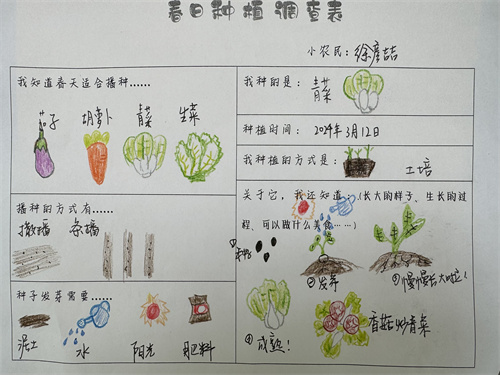 春日种植调查表
小农民：徐彦喆
我知道春天适合播种......
茄子 胡萝卜 青菜 生菜
播种的方式有......
撒播 条播
种子发芽需要......
泥土 水 阳光 肥料
我种的是：青菜
种植时间：2024年3月12日
我种植的方式是：土培
关于它，我还知道：(长大的样子、生长的过
程、可以做什么美食......)
①种子
②发芽
③慢慢长大啦！
④成熟！
香菇炒青菜